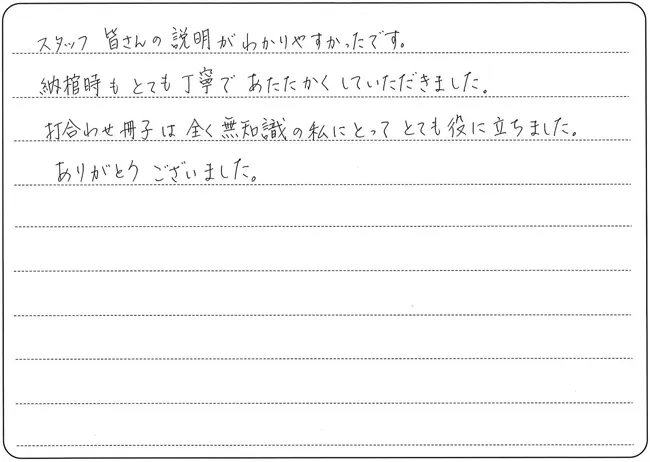 スタッフ 皆さんの説明がわかりやすかったです。
納棺時もとても丁寧であたたかくしていただきました。
打合わせ冊子は全く無知識の私にとってとても役に立ちました。
ありがとうございました。